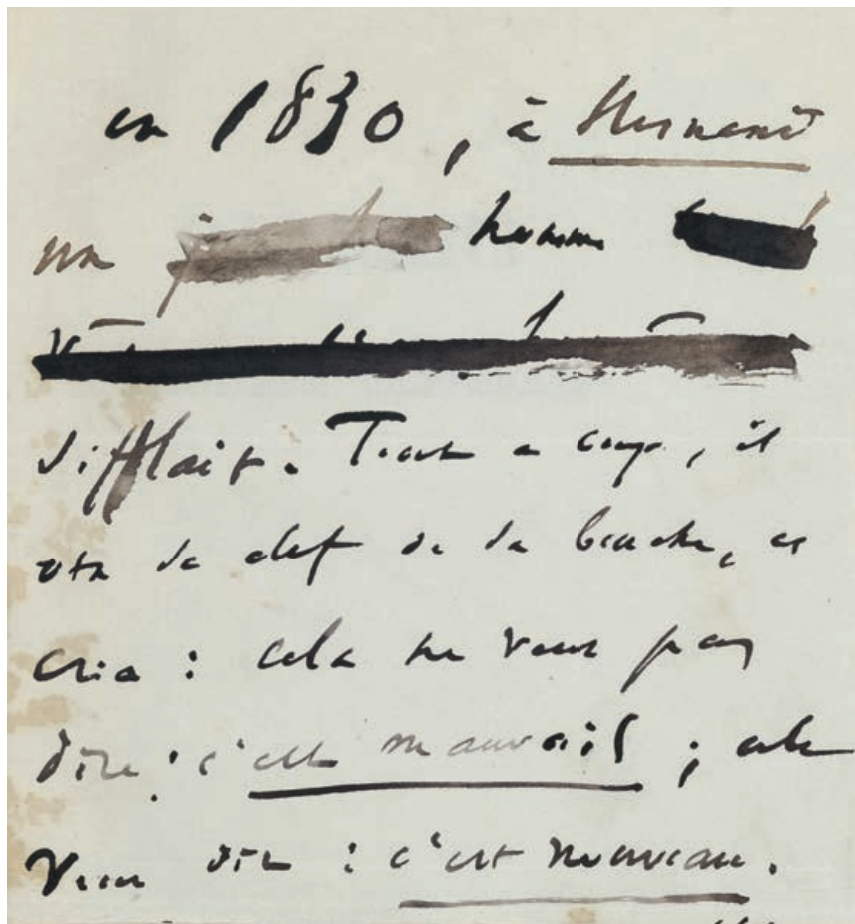 en 1830, à Hernani
un homme
sifflait. Tout à coup, il
ôta sa clef de sa bouche, et
cria : cela ne veut pas
dire : c'est mauvais ; cela
veut dire : c'est nouveau.